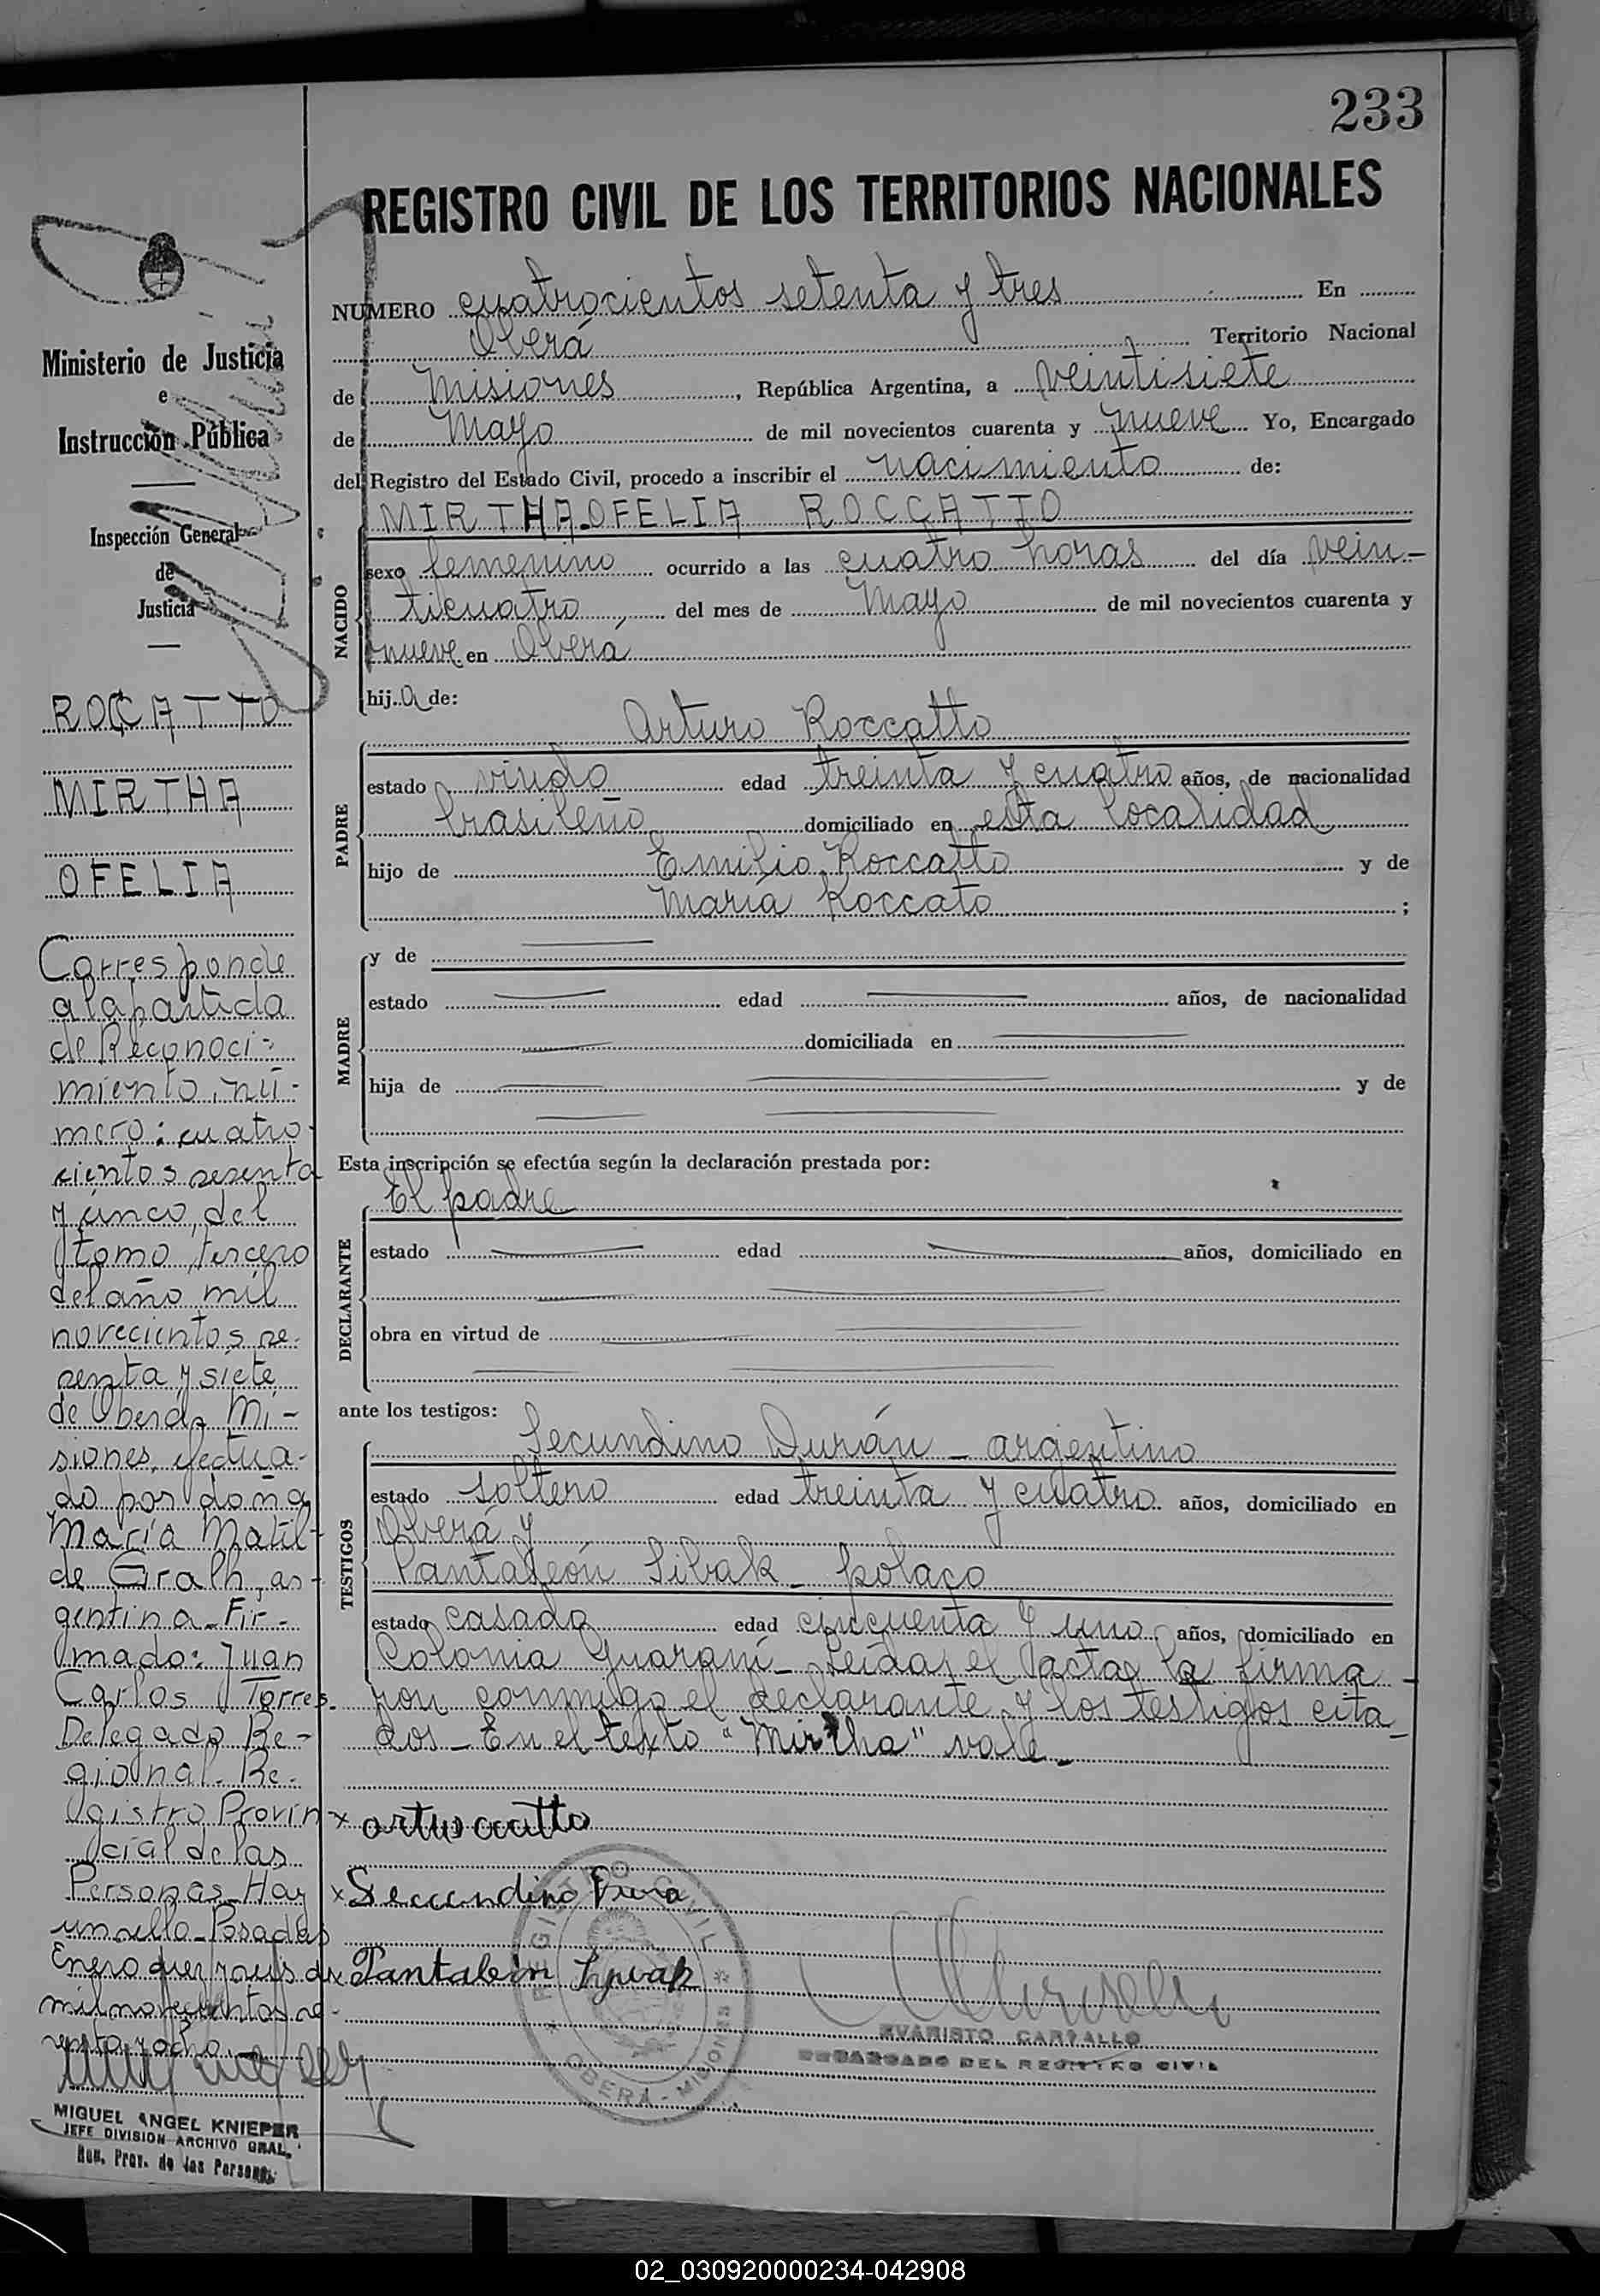 233
REGISTRO CIVIL DE LOS TERRITORIOS NACIONALES
NUMERO cuatrocientos setenta y tres En
Oberá Territorio Nacional
de Misiones, República Argentina, a veintisiete
de Mayo de mil novecientos cuarenta y nueve Yo, Encargado
del Registro del Estado Civil, procedo a inscribir el nacimiento de:
MIRTHA OFELIA ROCCATTO
NACIDO
sexo femenino ocurrido a las cuatro horas del día vein-
ticuatro del mes de Mayo de mil novecientos cuarenta y
nueve en Oberá
hija de:
Arturo Roccatto
PADRE
estado viudo edad treinta y cuatro años, de nacionalidad
brasileño domiciliado en esta localidad
hijo de Emilio Roccatto y de
María Roccato ;
MADRE
y de
estado edad años, de nacionalidad
domiciliada en
hija de y de
Esta inscripción se efectúa según la declaración prestada por:
El padre
DECLARANTE
estado edad años, domiciliado en
obra en virtud de
ante los testigos:
Secundino Durán - argentino
TESTIGOS
estado soltero edad treinta y cuatro años, domiciliado en
Oberá y
Pantaleón Sibak - polaco
estado casado edad cincuenta y uno años, domiciliado en
Colonia Guaraní - Leída el acta la firma-
ron conmigo el declarante y los testigos cita-
dos - En el texto "Mirtha" vale -
x
x Secundino
x Pantaleón
REGISTRO CIVIL
OBERA - MISIONES
EVARISTO CARVALLO
ENCARGADO DEL REGISTRO CIVIL
Ministerio de Justicia
e
Instrucción Pública
Inspección General
de
Justicia
ROCCATTO
MIRTHA
OFELIA
Corresponde
a la partida
de Reconoci-
miento, nú-
mero: cuatro-
cientos sesenta
y cinco, del
tomo tercero
del año mil
novecientos se-
senta y siete
de Oberá, Mi-
siones, efectua-
do por doña
María Matil-
de Gralh, ar-
gentina - Fir-
mado: Juan
Carlos Torres.
Delegado Re-
gional. Re-
gistro Provin
cial de las
Personas - Hay
un sello - Posadas
Enero dieciseis de
mil novecientos se-
senta y ocho.
MIGUEL ANGEL KNIEPER
JEFE DIVISION ARCHIVO GRAL.
Reg. Prov. de las Personas
02_030920000234-042908